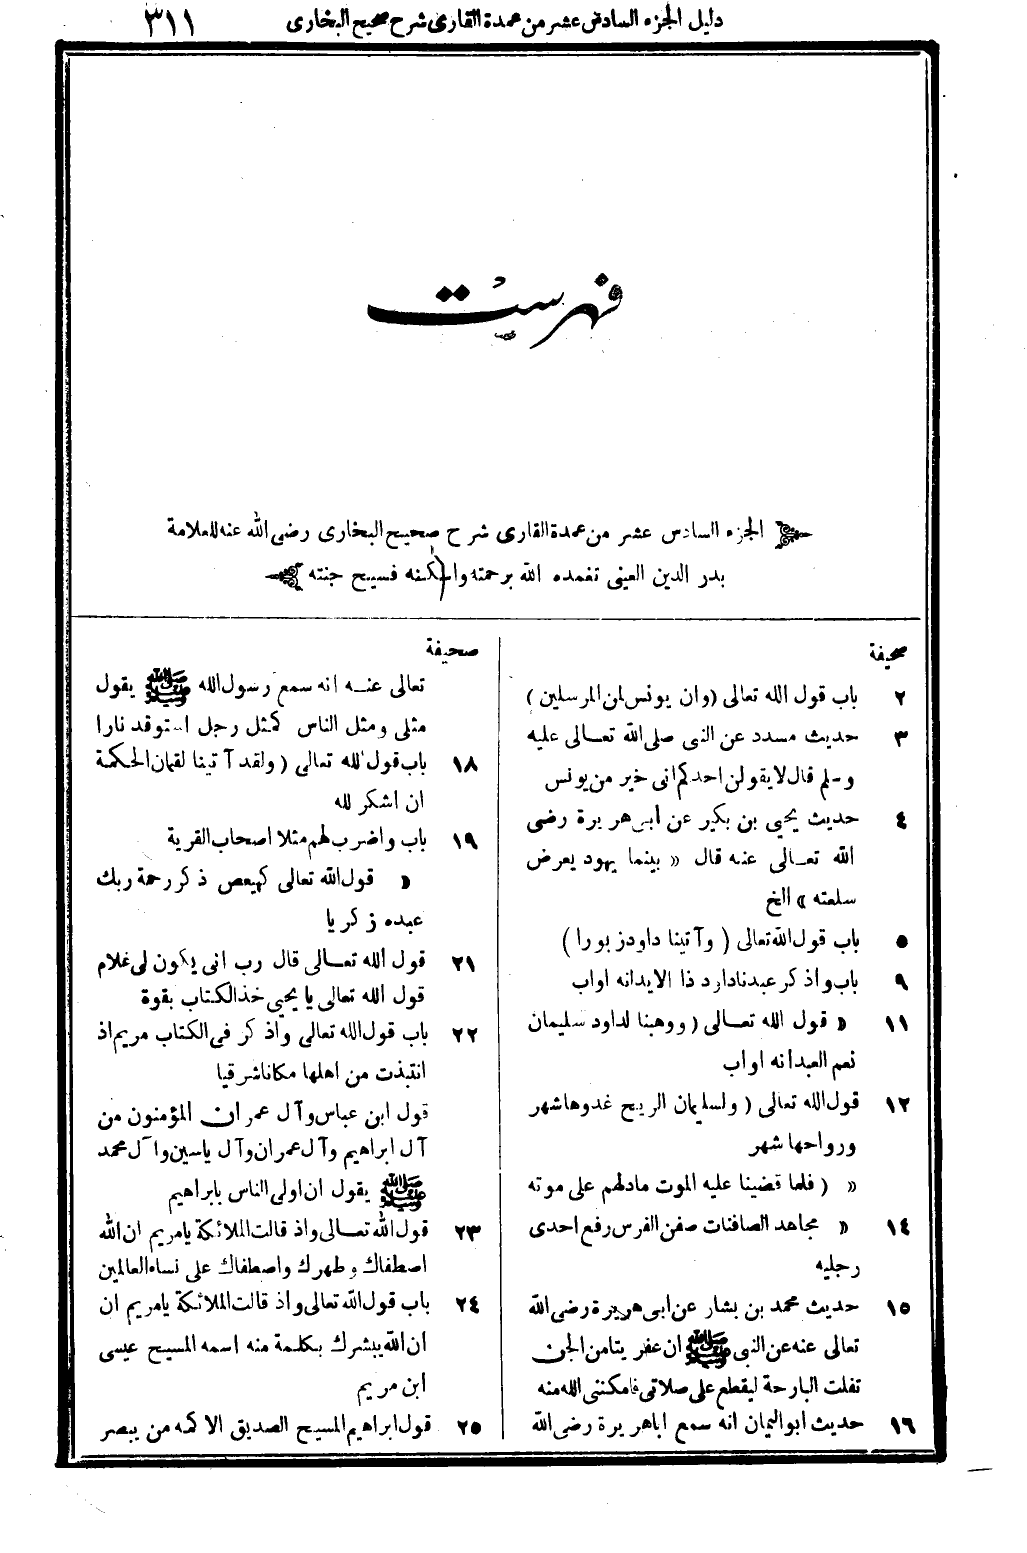 دليل الجزء السادس عشر من عمدة القارى شرح صحيح البخارى ٣١١
فهرست
الجزء السادس عشر من عمدة القارى شرح صحيح البخارى رضى الله عنه للعلامة
بدر الدين العينى تغمده الله برحمته واسكنه فسيح جنته
صحيفة
٢ باب قول الله تعالى (وان يونس لمن المرسلين)
٣ حديث مسدد عن النبى صلى الله تعالى عليه
وسلم قال لا يقولن احدكم انى خير من يونس
٤ حديث يحيى بن بكير عن أبى هريرة رضى
الله تعالى عنه قال «بينما يهود يعرض
سلعته» الخ
٥ باب قول الله تعالى (وآتينا داود زبورا)
٩ باب واذكر عبدنا داود ذا الايد انه اواب
١١ « قول الله تعالى (ووهبنا لداود سليمان
نعم العبد انه اواب
١٢ قول الله تعالى (ولسليمان الريح غدوها شهر
ورواحها شهر
« (فلما قضينا عليه الموت مادلهم على موته
١٤ « مجاهد الصافنات صفن الفرس رفع احدى
رجليه
١٥ حديث محمد بن بشار عن ابى هريرة رضى الله
تعالى عنه عن النبى ﷺ ان عفريتا من الجن
تفلت البارحة ليقطع على صلاتى فامكننى الله منه
١٦ حديث ابو اليمان انه سمع اباهريرة رضى الله
صحيفة
تعالى عنه انه سمع رسول الله ﷺ يقول
مثلى ومثل الناس كمثل رجل استوقد نارا
١٨ باب قول الله تعالى (ولقد آتينا لقمان الحكمة
ان اشكر لله
١٩ باب واضرب لهم مثلا اصحاب القرية
« قول الله تعالى كهيعص ذكر رحمة ربك
عبده زكريا
٢١ قول الله تعالى قال رب انى يكون لى غلام
قول الله تعالى يا يحيى خذ الكتاب بقوة
٢٢ باب قول الله تعالى واذكر فى الكتاب مريم اذ
انتبذت من اهلها مكانا شرقيا
قول ابن عباس وآل عمران المؤمنون من
آل ابراهيم وآل عمران وآل ياسين وآل محمد
ﷺ يقول ان اولى الناس بابراهيم
٢٣ قول الله تعالى واذ قالت الملائكة يا مريم ان الله
اصطفاك وطهرك واصطفاك على نساء العالمين
٢٤ باب قول الله تعالى واذ قالت الملائكة يامريم ان
ان الله يبشرك بكلمة منه اسمه المسيح عيسى
ابن مريم
٢٥ قول ابراهيم المسيح الصديق الاكمه من يبصر